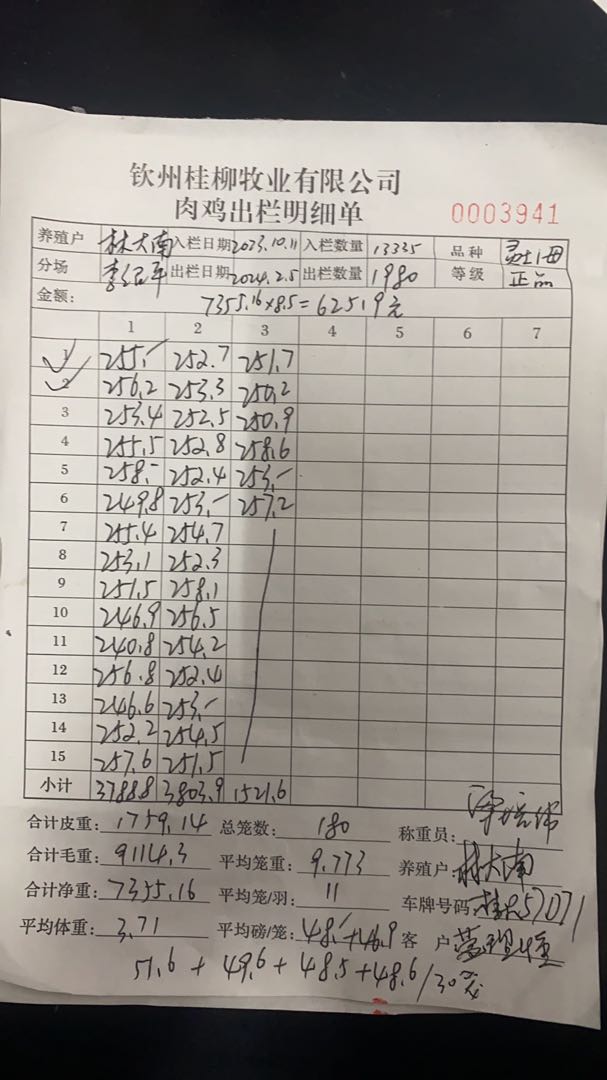 钦州桂柳牧业有限公司
肉鸡出栏明细单
0003941
养殖户 林大南 入栏日期 2023.10.11 入栏数量 13335 品种
分场 出栏日期 2024.2.5 出栏数量 1980 等级 正品
金额: 7355.16×8.5=62519元
1 2 3 4 5 6 7
1 255.- 252.7 251.7
2 256.2 253.3 250.2
3 253.4 252.5 250.9
4 255.5 252.8 258.6
5 258.- 252.4 253.-
6 249.8 253.- 257.2
7 255.4 254.7
8 253.1 252.3
9 251.5 258.1
10 246.9 256.5
11 240.8 254.2
12 256.8 252.4
13 246.6 253.-
14 252.2 254.5
15 257.6 251.5
小计 3788.8 3803.9 1521.6
合计皮重: 1759.14 总笼数: 180 称重员:
合计毛重: 9114.3 平均笼重: 9.773 养殖户: 林大南
合计净重: 7355.16 平均笼/羽: 11 车牌号码:
平均体重: 3.71 平均磅/笼: 48.-+46.9 客 户
51.6 + 49.6 + 48.5 + 48.6/30笼